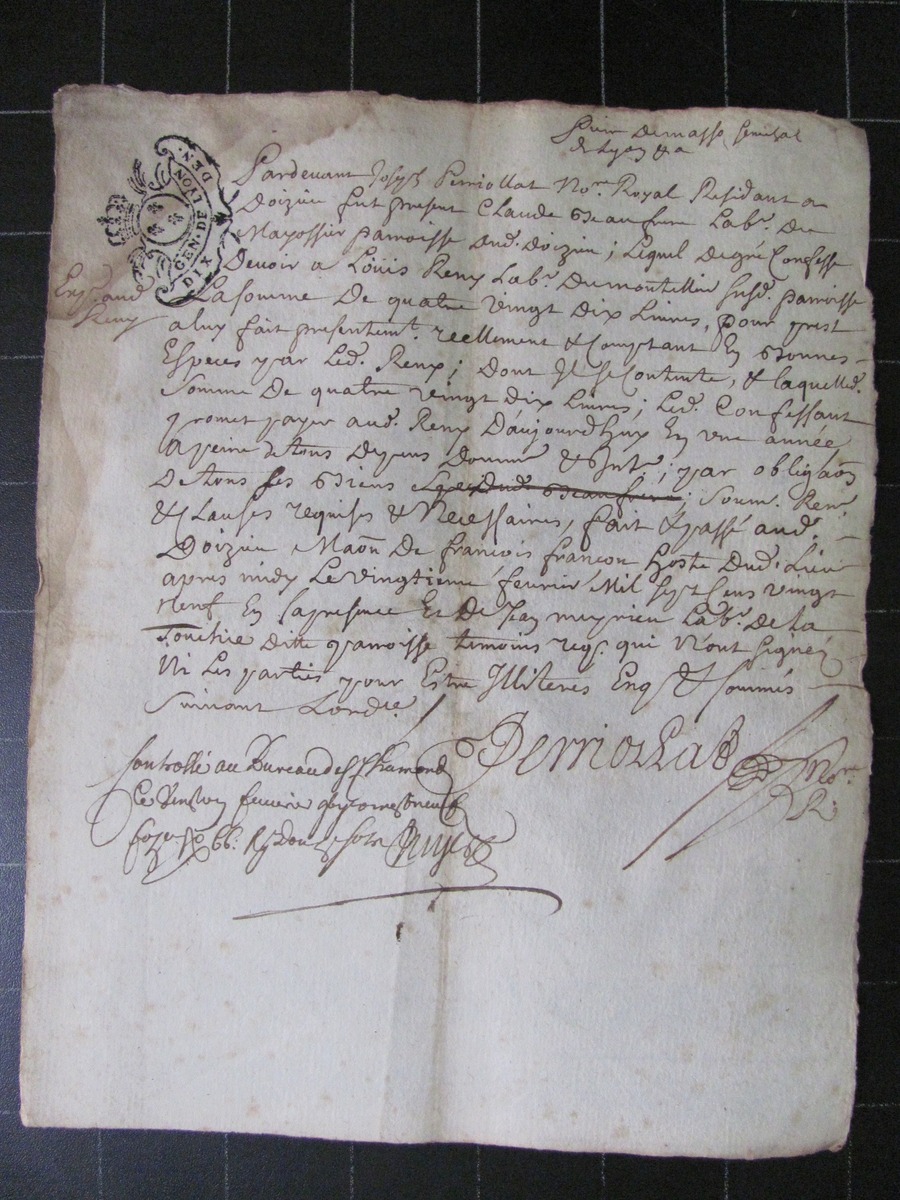 de Lyon & a
GEN. DE LYON
DIX DEN.
Pardevant Joseph Perriollat No.re Royal Residant a
Doizieu fut present Claude Beaufrere Lab.r de
parroisse dud. doizieu ; Lequel de gré Confesse
Devoir a Loüis Remy Lab.r du montellier susd. parroisse
Exp.é aud.
Remy
La somme De quatre vingt Dix Livres, pour prest
a luy fait presentem.t reellement & Comptant En Bonnes
Especes par Led. Remy ; Dont Il se Contente, & laquelle
somme De quatre vingt Dix Livres ; Led. Confessant
promet payer aud. Remy D'aujourdhuy En une année
a peine de tous Depens Dommé & Int. ; par obligaõn
de tous ses Biens soum. Ren.
& Clauses requises & Necessaires, fait & passé aud.
Doizieu Maõn De françois françon hoste Dud. Lieu
apres midy Le vingtieme fevrier Mil sept Cens vingt
neuf En sa presence Et De Jean meyrieu Lab.r de la
ditte parroisse temoins req. qui N'ont signé
Ni Les parties pour Estre Illiteres Enq. & sommés
suivant Lord.e
Perriollat No.re
R.
Controllé au Bureau de St Chamond
Ce fevrier